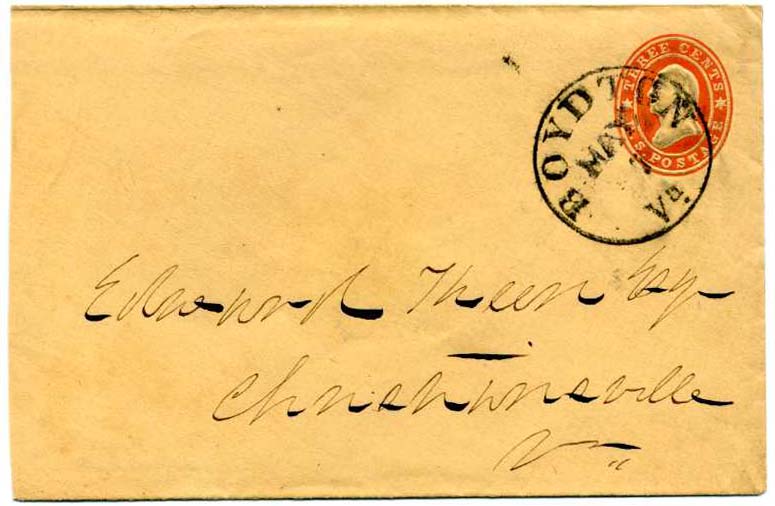 THREE CENTS
U.S. POSTAGE
BOYDTON
MAY
Va
Edward
Esq
Va